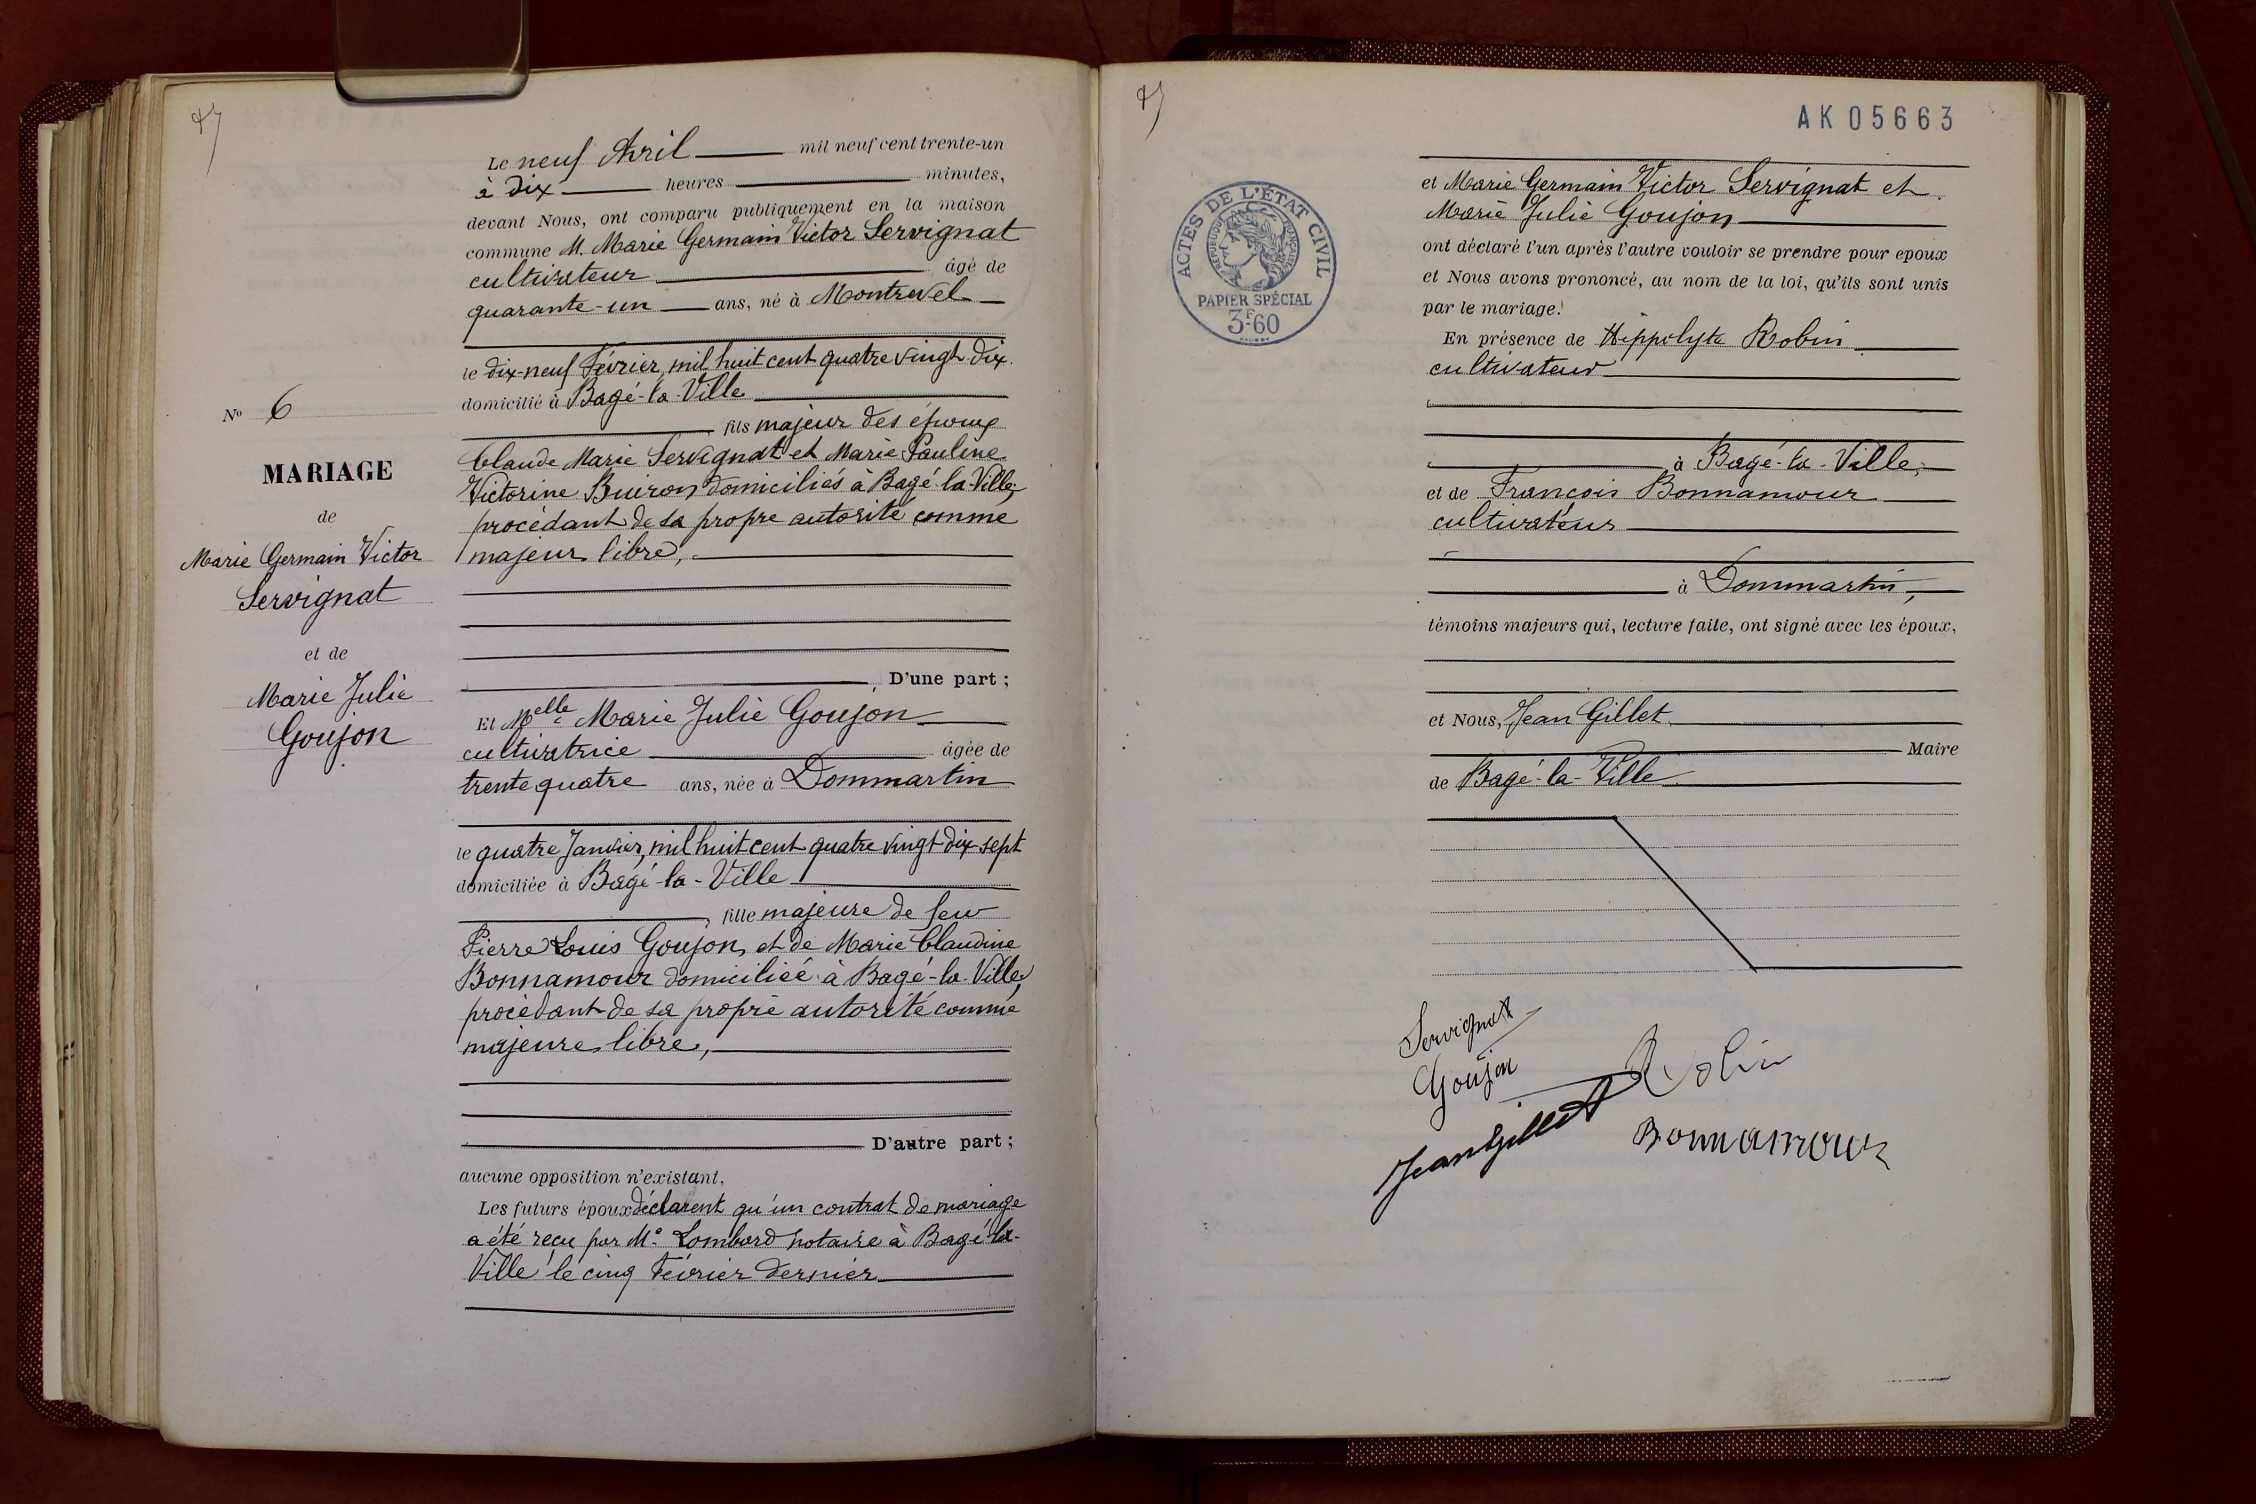 Le neuf Avril mil neuf cent trente-un
à dix heures minutes,
devant Nous, ont comparu publiquement en la maison
commune M. Marie Germain Victor Servignat
cultivateur âgé de
quarante-un ans, né à Montrevel
le dix-neuf Février, mil huit cent quatre vingt dix
domicilié à Bagé-la-Ville
fils majeur des époux
Claude Marie Servignat et Marie Pauline
Victorine Buiron domiciliés à Bagé-la-Ville,
procédant de sa propre autorité comme
majeur libre,
D'une part ;
Et Melle Marie Julie Goujon
cultivatrice âgée de
trente quatre ans, née à Dommartin
le quatre Janvier, mil huit cent quatre vingt dix sept
domiciliée à Bagé-la-Ville
, fille majeure de feu
Pierre Louis Goujon, et de Marie Claudine
Bonnamour domiciliée à Bagé-la-Ville,
procédant de sa propre autorité comme
majeure libre,
D'autre part ;
aucune opposition n'existant,
Les futurs époux déclarent qu'un contrat de mariage
a été reçu par Me Lombard notaire à Bagé-la-
Ville le cinq Février dernier
No 6
MARIAGE
de
Marie Germain Victor
Servignat
et de
Marie Julie
Goujon
AK 05663
ACTES DE L'ÉTAT CIVIL
RÉPUBLIQUE FRANÇAISE
PAPIER SPÉCIAL
3F60
et Marie Germain Victor Servignat et
Marie Julie Goujon
ont déclaré l'un après l'autre vouloir se prendre pour epoux
et Nous avons prononcé, au nom de la loi, qu'ils sont unis
par le mariage.
En présence de Hippolyte Robin
cultivateur
à Bagé-la-Ville,
et de François Bonnamour
cultivateur
à Dommartin,
témoins majeurs qui, lecture faite, ont signé avec les époux,
et Nous, Jean Gillet
Maire
de Bagé-la-Ville
Servignat
Goujon
Robin
Jean Gillet
Bonnamour